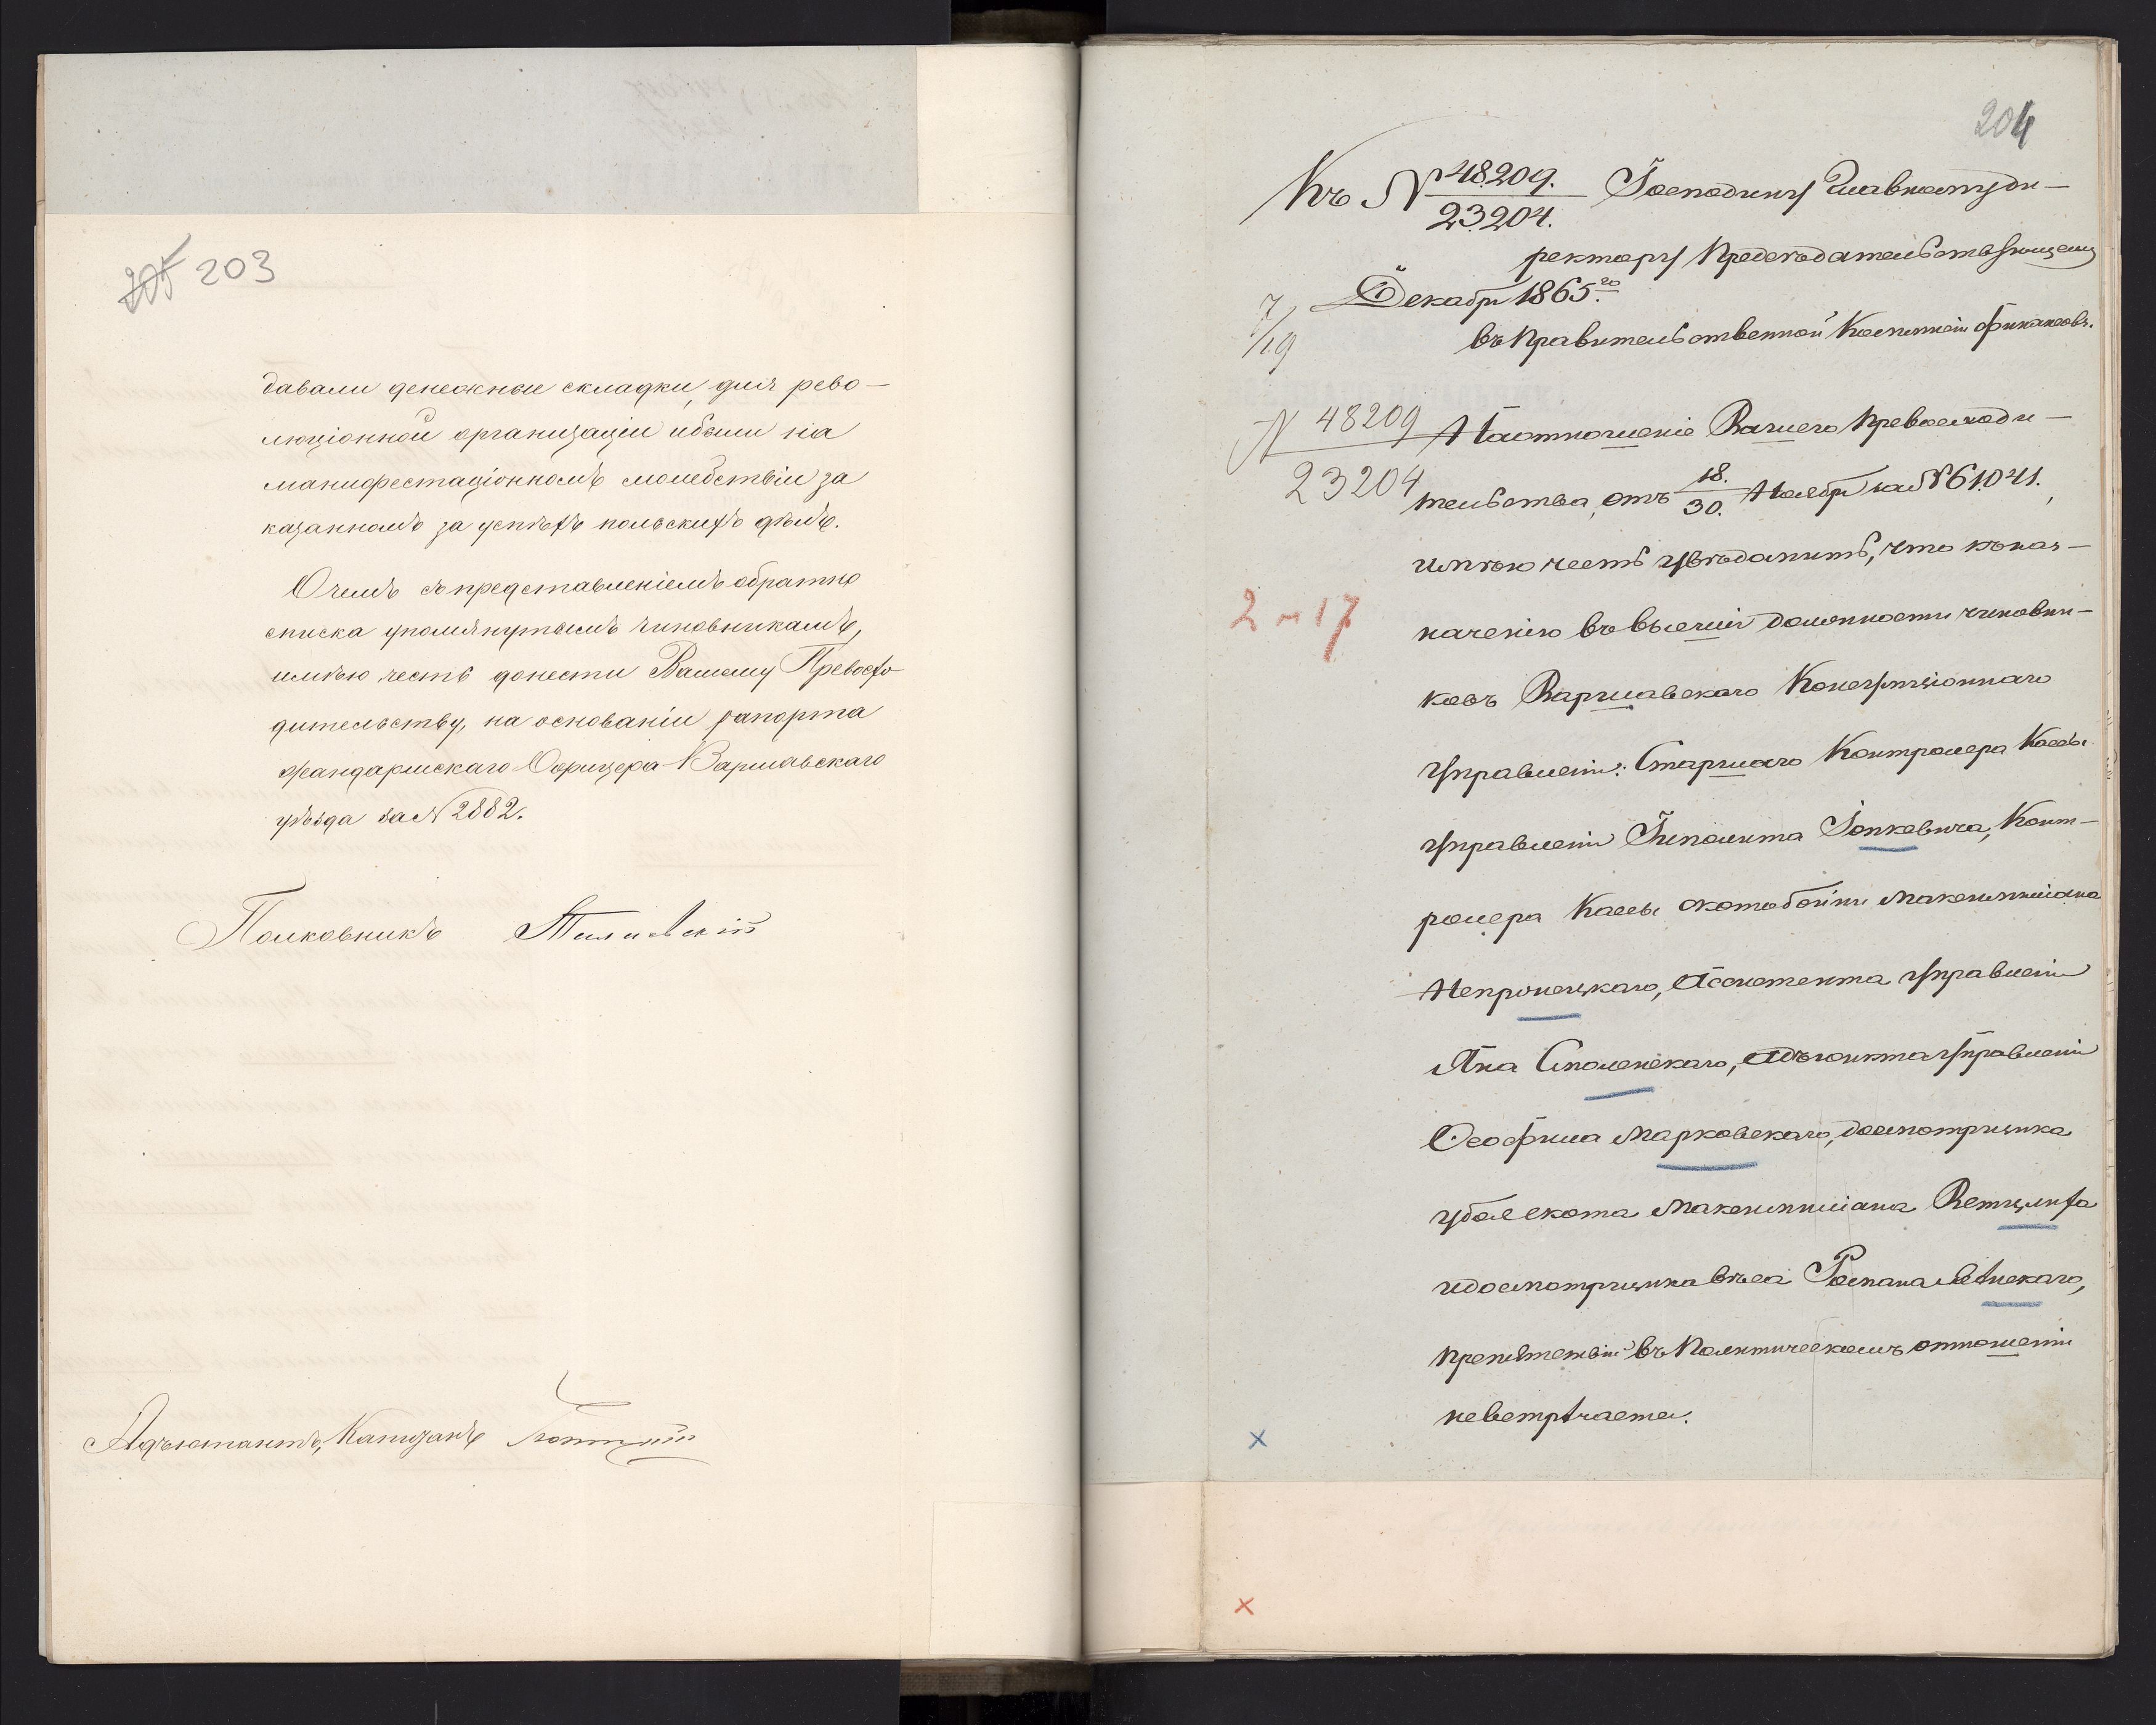 203
давали денежныи складки, для рево-
люціонной организаціи и были на
манифестаціонномъ молебствіи за
казанномъ за успѣхъ польскихъ дѣлъ.
О чемъ съ представленіемъ обратно
списка упомянутымъ чиновникамъ,
имѣю честь донести Вашему Превосхо
дительству, на основаніи рапорта
Жандармскаго Офицера Варшавскаго
уѣзда за N 2882.
Полковникъ
Адъютантъ, Капитанъ
204
Къ N 48209. Господину Главному Ди-
23204.
ректору Предсѣдательствующему
7/19 Декабря 1865.го
въ Правительственной Коммиссіи Финансовъ.
N 48209 На отношеніе Вашего Превосходи-
23204 тельства, отъ 18./30. Ноября за N 61041.,
имѣю честь увѣдомить, что къ наз-
2 м 17
наченію въ высшія должности чиновни-
ковъ Варшавскаго Консумціоннаго
Управленія: Старшаго Контролера Кассы
Управленія Ипполита Іопкевича, Конт-
ролера Кассы скотобойни Максимиліана
Непронецкаго, Ассистента Управленія
Яна Смоленскаго, Адъюнкта Управленія
Ѳеофила Марковскаго, досмотрщика
убоя скота Максимиліана Ветцлиха
и досмотрщика вѣса Романа Лѣнскаго,
препятствій въ политическомъ отношеніи
не встрѣчается.